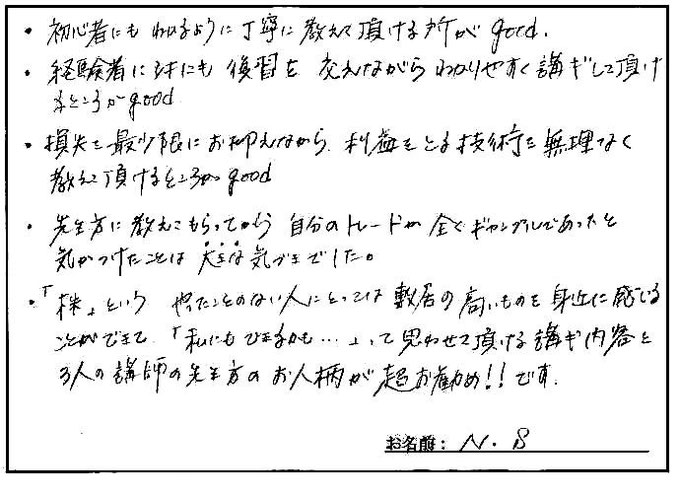 ・初心者にもわかるように丁寧に教えて頂ける所がgood.
・経験者に対にも復習を交えながらわかりやすく講ギして頂け
るところがgood
・損失を最少限にお抑えながら、利益をとる技術を無理なく
教えて頂けるところがgood
・先生方に教えてもらってから自分のトレードが全くギャンブルであったと
気がつけたことは大きな気づきでした。
・「株」という やったことのない人にとっては敷居の高いものを身近に感じる
ことができて、「私にもできるかも…」って思わせて頂ける講ギ内容と
3人の講師の先生方のお人柄が超お勧め!!です.
お名前: N.S